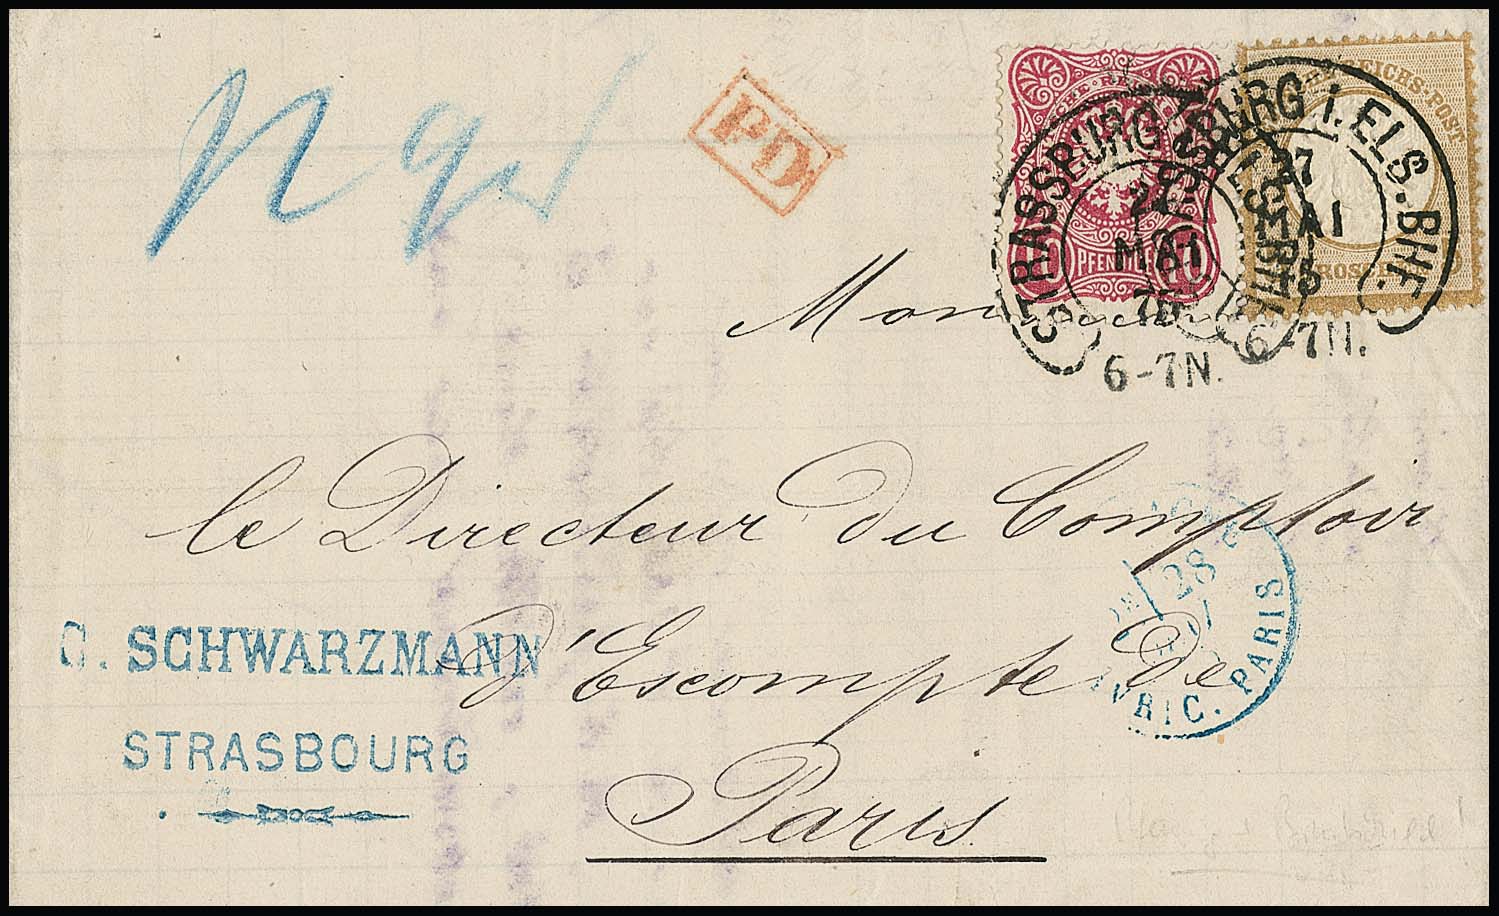 PD
REICHS-POST
PFENNIGE 10
STRASSBURG I. ELS. BHF.
27
MAI
75
6-7N.
STRASSBURG I. ELS. BHF.
27
MAI
75
6-7N.
Monsieur
le Directeur du Comptoir
d'Escompte de
Paris
G. SCHWARZMANN
STRASBOURG
28
AVRIC. PARIS